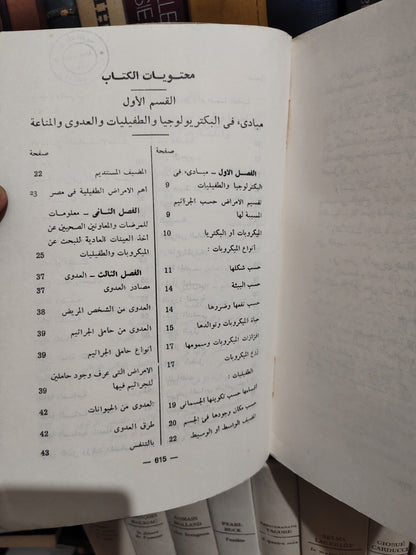 محتويات الكتاب
القسم الأول
مبادىء فى البكتريولوجيا والطفيليات والعدوى والمناعة
صفحة
الفصل الاول – مبادىء فى
البكترلوجيا والطفيليات 9
تقسيم الأمراض حسب الجراثيم
المسببة لها 9
الميكروبات أو البكتريا 10
أنواع الميكروبات :
حسب شكلها 11
حسب البيئة 14
حسب نفعها وضررها 14
حياة الميكروبات وتوالدها 15
افرازات الميكروبات وسمومها 17
تدرج الميكروبات 17
الطفيليات :
أقسامها حسب تكوينها الجسمانى 19
حسب مكان وجودها فى الجسم 20
المضيف الواسط أو الوسيط 22
صفحة
المضيف المستديم 22
أهم الامراض الطفيلية فى مصر 23
الفصل الثانى – معلومات
للممرضات والمعاونين الصحيين عن
أخذ العينات العادية للبحث عن
الميكروبات والطفيليات 25
الفصل الثالث – العدوى 37
مصادر العدوى 37
العدوى من الشخص المريض 38
العدوى من حاملى الجراثيم 39
أنواع حاملى الجراثيم 39
الامراض التى عرف وجود حاملين
للجراثيم فيها 39
العدوى من الحيوانات 42
طرق العدوى 42
بالتنفس 43
— 615 —
ROMAIN
ROLLAND
PEARL
BUCK
SELMA
LAGERLÖF
GIOSUÈ
CARDUCCI